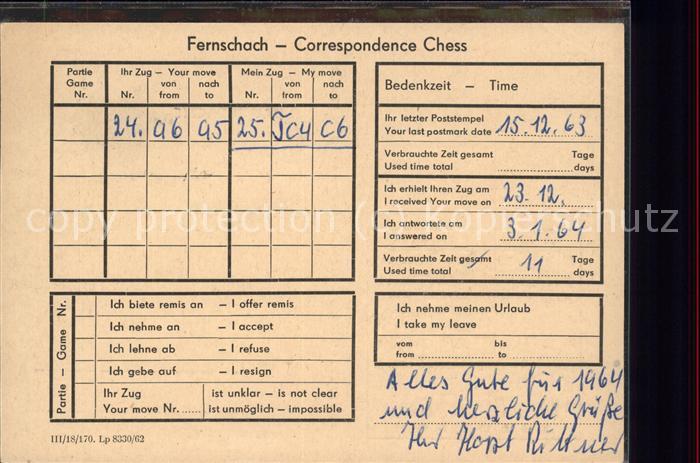 Fernschach – Correspondence Chess
Partie Game Nr.
Ihr Zug – Your move
Mein Zug – My move
Nr. von from nach to Nr. von from nach to
24. a6 a5 25. Tc4 c6
Bedenkzeit – Time
Ihr letzter Poststempel
Your last postmark date 15.12.63
Verbrauchte Zeit gesamt Tage
Used time total days
Ich erhielt Ihren Zug am
I received Your move on 23.12.
Ich antwortete am
I answered on 3.1.64
Verbrauchte Zeit gesamt 11 Tage
Used time total days
copy protection (c) Kopierschutz
Partie – Game Nr.
Ich biete remis an – I offer remis
Ich nehme an – I accept
Ich lehne ab – I refuse
Ich gebe auf – I resign
Ihr Zug ist unklar – is not clear
Your move Nr. ...... ist unmöglich – impossible
Ich nehme meinen Urlaub
I take my leave
vom bis
from to
Alles Gute für 1964
und herzliche Grüße
Ihr Horst Rittner
III/18/170. Lp 8330/62